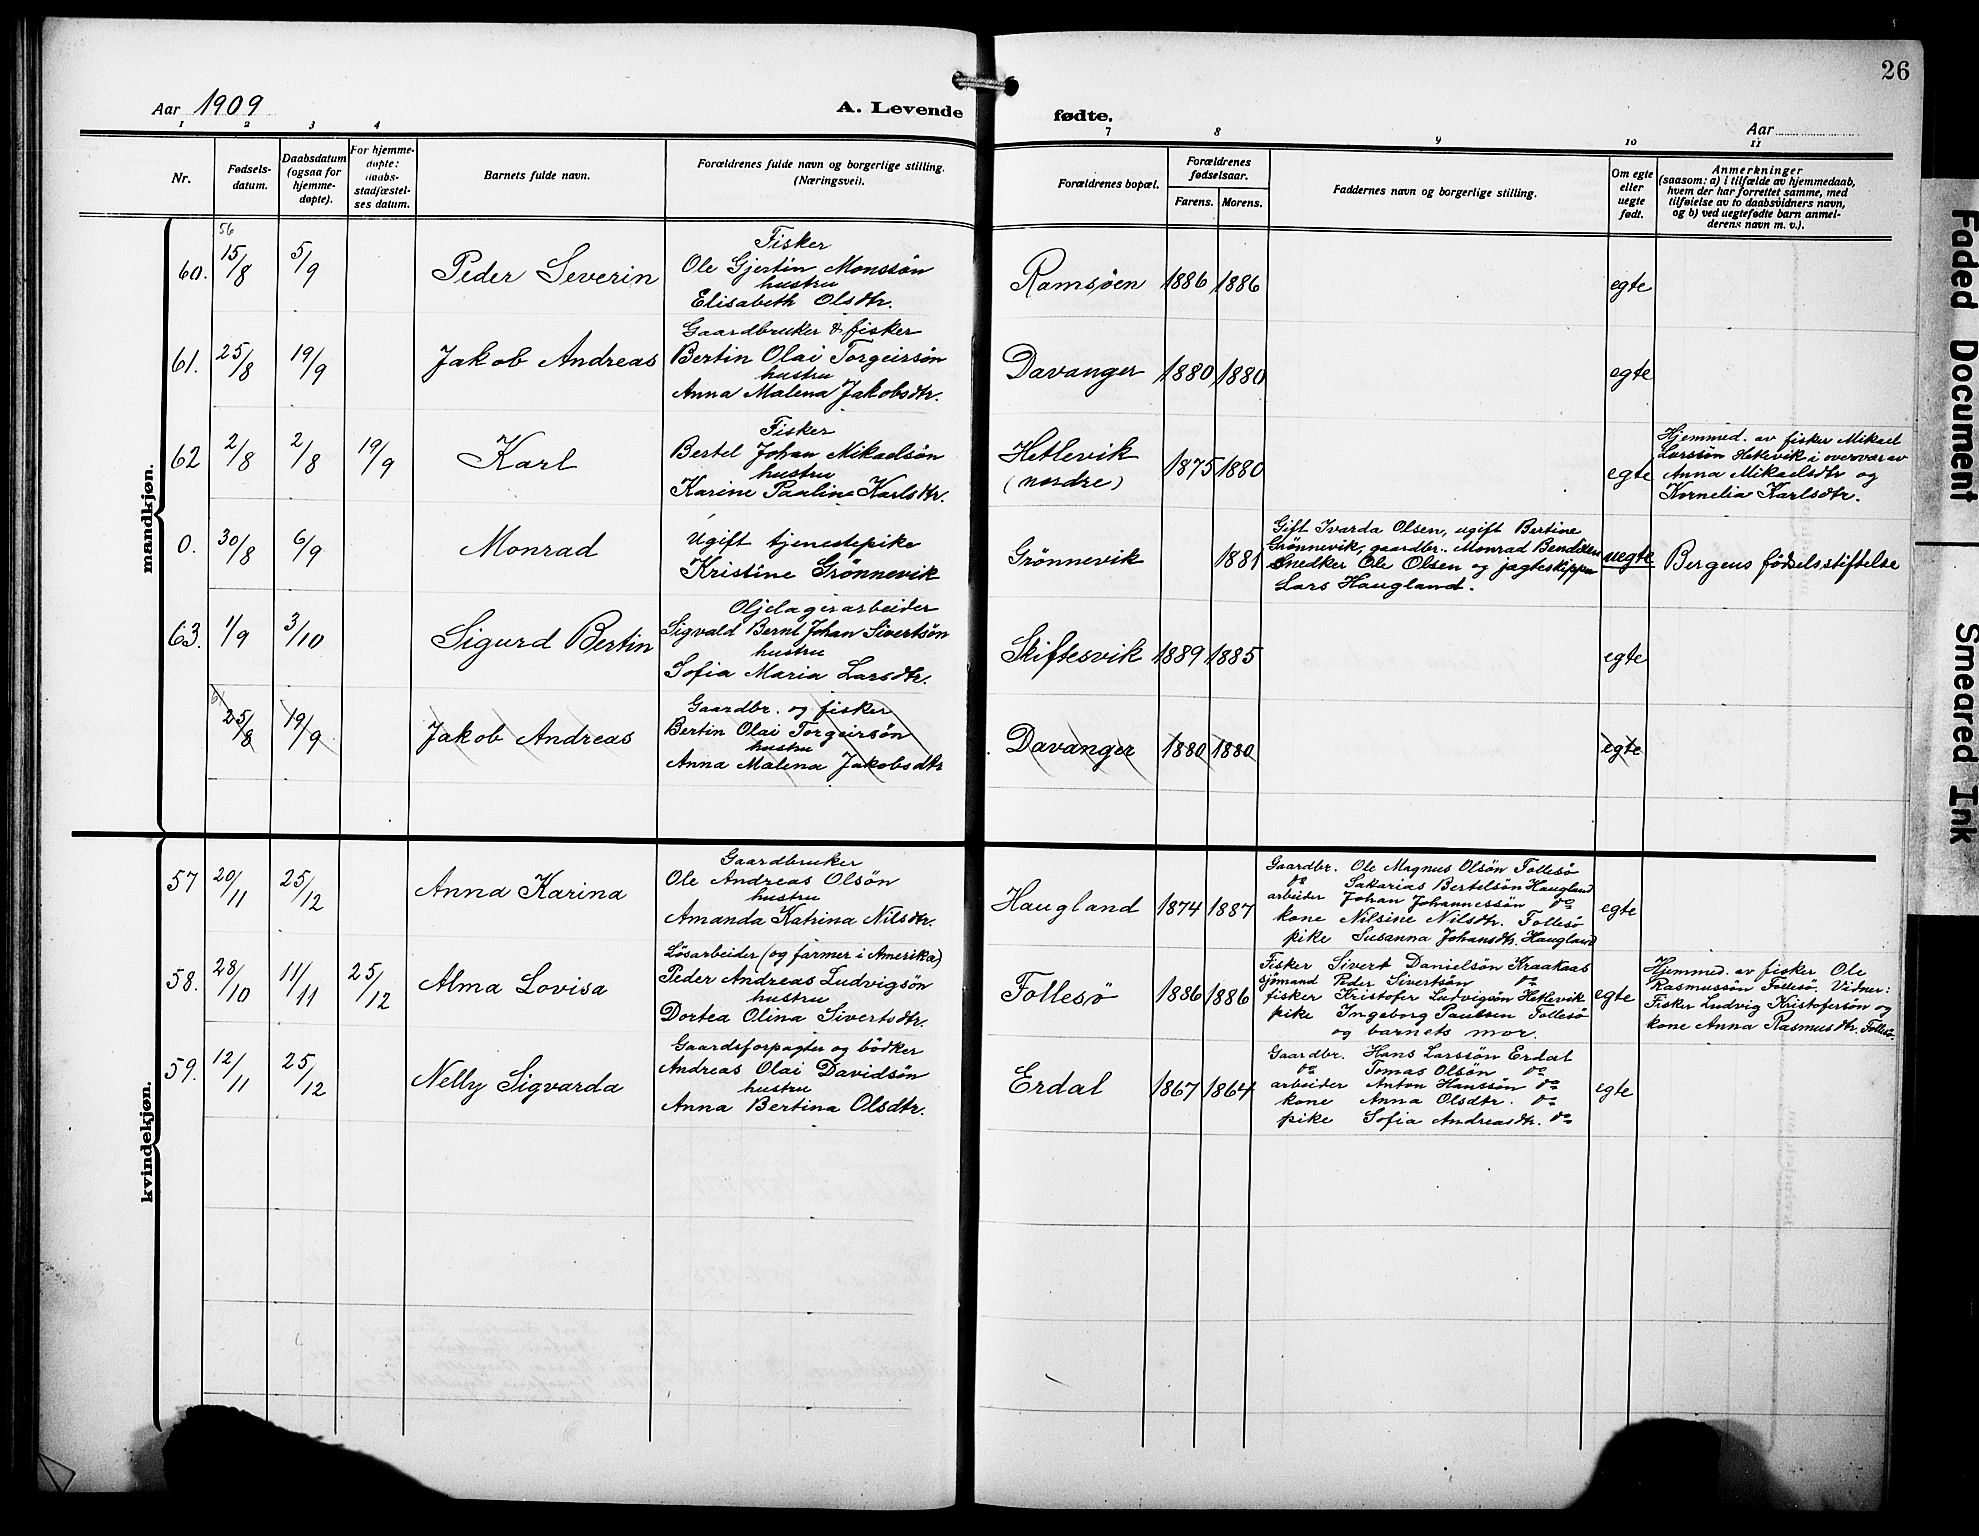 26
Aar 1909
A. Levende
fødte.
Aar
1 2 3 4
7 8 9 10 11
Nr.
Fødsels-
datum.
Daabsdatum
(ogsaa for
hjemme-
døpte).
For hjemme-
døpte:
daabs-
stadfæstel-
ses datum.
Barnets fulde navn.
Forældrenes fulde navn og borgerlige stilling.
(Næringsvei).
Forældrenes bopæl.
Forældrenes
fødselsaar.
Farens. Morens.
Faddernes navn og borgerlige stilling.
Om egte
eller
uegte
født.
Anmerkninger
(saasom: a) i tilfælde av hjemmedaab,
hvem der har forrettet samme, med
tilføielse av to daabsvidners navn,
og b) ved uegtefødte barn anmel-
derens navn m. v.).
mandkjøn.
56
60. 15/8 5/9
Peder Severin
Fisker
Ole Gjertin Monssøn
hustru
Elisabeth Olsdtr.
Ramsøen 1886 1886
egte
61. 25/8 19/9
Jakob Andreas
Gaardbruker & fisker
Bertin Olai Torgeirsøn
hustru
Anna Malena Jakobsdtr.
Davanger 1880 1880
egte
62 2/8 2/8 19/9
Karl
Fisker
Bertel Johan Mikaelsøn
hustru
Karine Pauline Karlsdtr.
Hetlevik
(nordre)
1875 1880
egte
Hjemmed. av fisker Mikael
Larssøn Hetlevik i overvær av
Anna Mikaelsdtr og
Kornelia Karlsdtr.
0. 30/8 6/9
Monrad
Ugift tjenestepike
Kristine Grønnevik
Grønnevik 1881
Gift Ivarda Olsen, ugift Bertine
Grønnevik, gaardbr. Monrad Bendixen
Snedker Ole Olsen og jægteskipper
Lars Haugland.
uegte
Bergens fødselsstiftelse
63. 1/9 3/10
Sigurd Bertin
Oljelagerarbeider
Sigvald Bernt Johan Sivertsøn
hustru
Sofia Maria Larsdtr.
Skiftesvik 1889 1885
egte
25/8 19/9
Jakob Andreas
Gaardbr. og fisker
Bertin Olai Torgeirsøn
hustru
Anna Malena Jakobsdtr
Davanger 1880 1880
egte
kvindekjøn.
57 20/11 25/12
Anna Karina
Gaardbruker
Ole Andreas Olsøn
hustru
Amanda Katrina Nilsdtr.
Haugland 1874 1887
Gaardbr. Ole Magnus Olsøn Follesø
do Sakarias Bertelsøn Haugland
arbeider Johan Johannessøn do
kone Nilsine Nilsdtr. Follesø
pike Susanna Johansdtr. Haugland
egte
58. 28/10 11/11 25/12
Alma Lovisa
Løsarbeider (og farmer i Amerika)
Peder Andreas Ludvigsøn
hustru
Dortea Olina Sivertsdtr.
Follesø 1886 1886
Fisker Sivert Danielsøn Kraakaas
sjømand Peder Sivertsøn do
fisker Kristofer Ludvigsøn Hetlevik
pike Ingeborg Paulsen Follesø
og barnets mor.
egte
Hjemmed. av fisker Ole
Rasmussøn Follesø. Vidner:
Fisker Ludvig Kristofersøn og
kone Anna Rasmusdtr. Follesø.
59. 12/11 25/12
Nelly Sigvarda
Gaardsforpagter og bødker
Andreas Olai Davidsøn
hustru
Anna Bertina Olsdtr.
Erdal 1867 1864
Gaardbr. Hans Larssøn Erdal
do Tomas Olsøn do
arbeider Anton Hanssøn do
kone Anna Olsdtr. do
pike Sofia Andreasdtr. do
egte
Faded Document
Smeared Ink